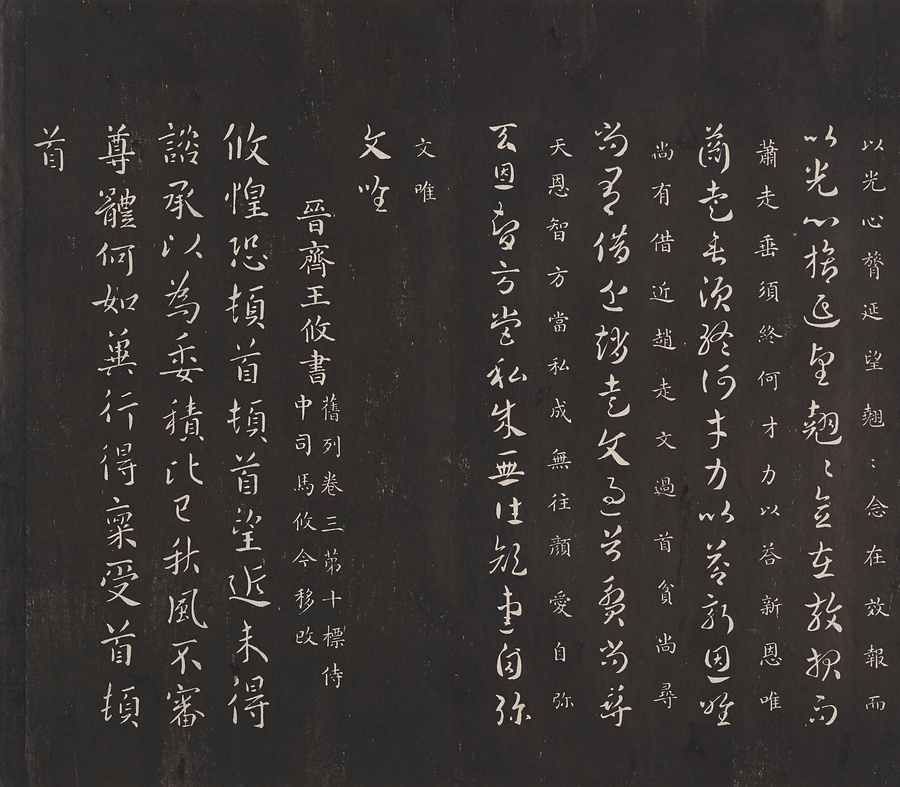 以光心膂延望翹〻念在效報而
以光心膂延望翹〻念在效報而
蕭走垂須終何才力以荅新恩唯
蕭走垂須終何才力以荅新恩唯
尚有借近趙走文過首貧尚尋
尚有借近趙走文過首貧尚尋
天恩智方當私成無往顏愛自弥
天恩智方當私成無往顏愛自弥
文唯
文唯
晉齊王攸書
舊列卷三苐十標侍
中司馬攸今移改
攸惶恐頓首頓首望近未得
諮承以為委積比已秋風不審
尊體何如冀行得稟受首頓
首